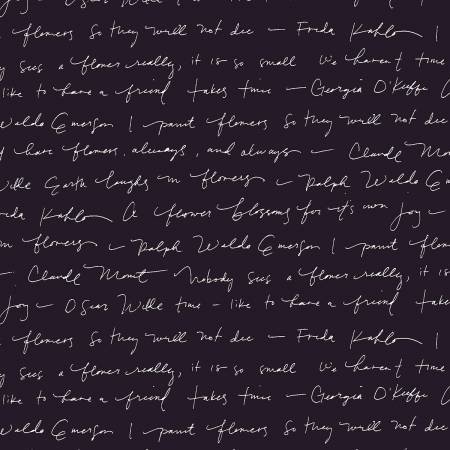 Joy – Oscar Wilde time – like to have a friend take
flowers so they will not die – Frida Kahlo I
y sees a flower really, it is so small we haven't time
like to have a friend takes time – Georgia O'Keeffe
Waldo Emerson I paint flowers so they will not die
y have flowers, always, and always – Claude Mon
Wilde Earth laughs in flowers – Ralph Waldo Em
rida Kahlo A flower blossoms for it's own Joy –
in flowers – Ralph Waldo Emerson I paint flow
– Claude Monet Nobody sees a flower really, it is
Joy – Oscar Wilde time – like to have a friend take
flowers so they will not die – Frida Kahlo I
y sees a flower really, it is so small we haven't time
like to have a friend takes time – Georgia O'Keeffe
Waldo Emerson I paint flowers so they will not die